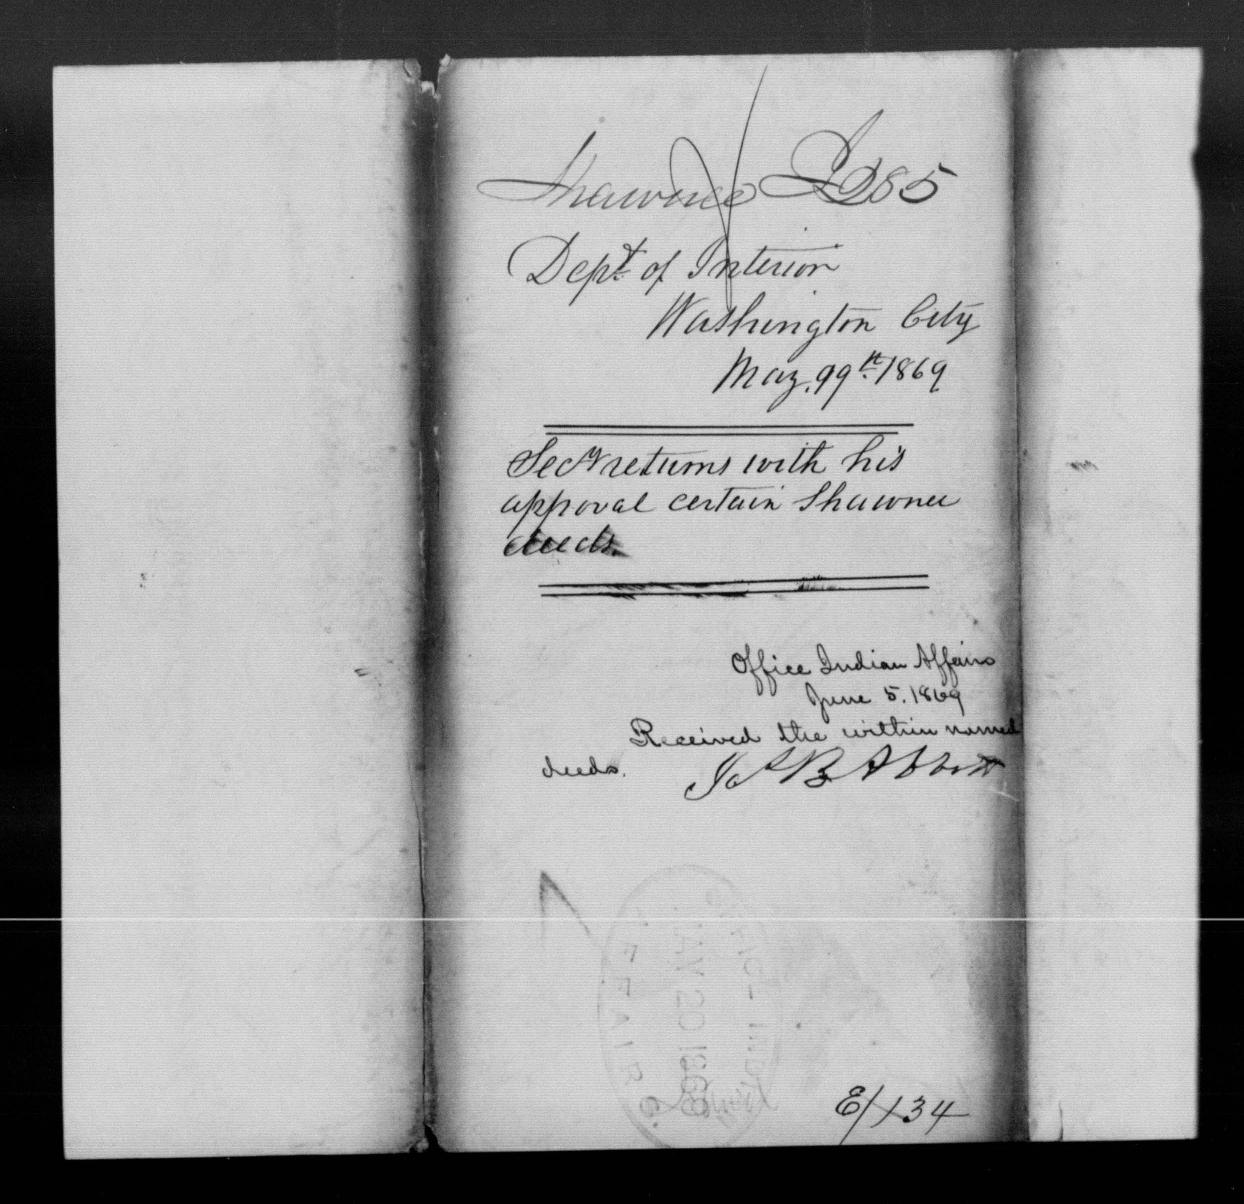 Shawnee I 285
Dept of Interior
Washington City
May, 19th 1869
Secy returns with his
approval certain Shawnee
deeds.
Office Indian Affairs
June 5. 1869
Received the within named
deeds. Jas B Abbott
MAY 20 1869
AFFAIRS.
E/134